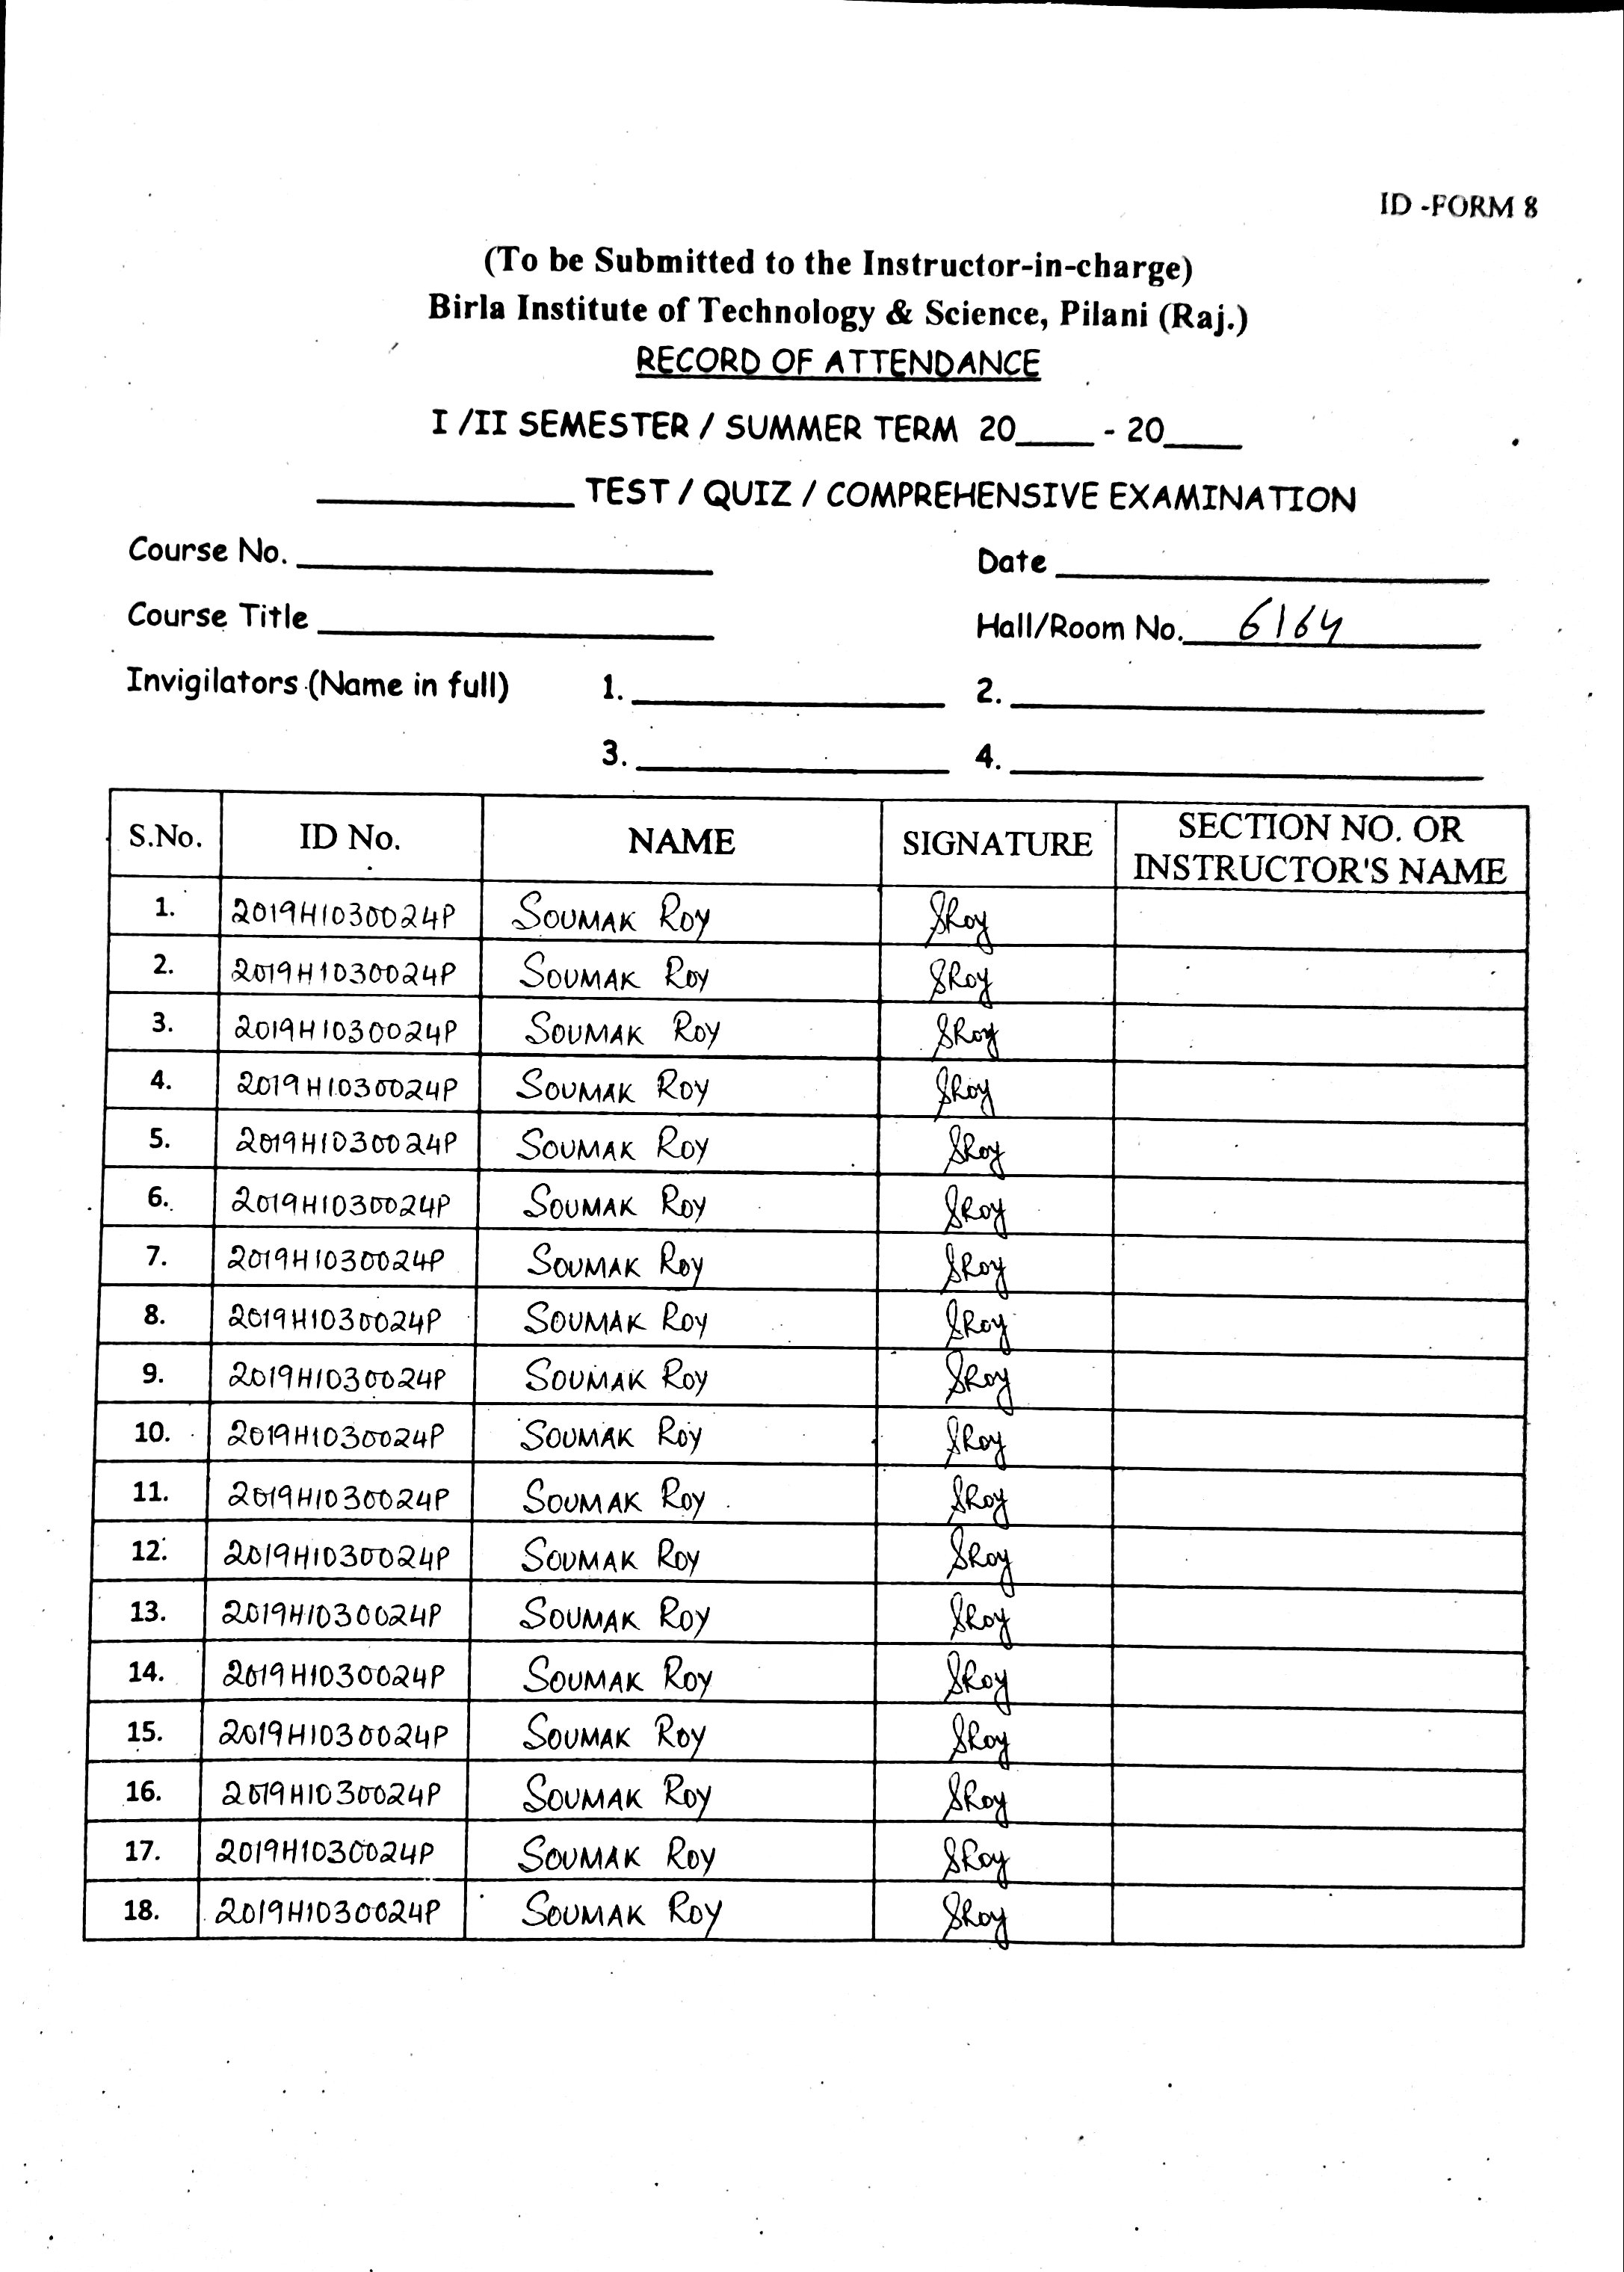 ID -FORM 8
(To be Submitted to the Instructor-in-charge)
Birla Institute of Technology & Science, Pilani (Raj.)
RECORD OF ATTENDANCE
I /II SEMESTER / SUMMER TERM 20____ - 20____
____________ TEST / QUIZ / COMPREHENSIVE EXAMINATION
Course No. ____________ Date ____________
Course Title ____________ Hall/Room No. 6164
Invigilators (Name in full) 1. ____________ 2. ____________
3. ____________ 4. ____________
S.No. ID No. NAME SIGNATURE SECTION NO. OR INSTRUCTOR'S NAME
1. 2019H1030024P SOUMAK ROY SRoy
2. 2019H1030024P SOUMAK ROY SRoy
3. 2019H1030024P SOUMAK ROY SRoy
4. 2019H1030024P SOUMAK ROY SRoy
5. 2019H1030024P SOUMAK ROY SRoy
6. 2019H1030024P SOUMAK ROY SRoy
7. 2019H1030024P SOUMAK ROY SRoy
8. 2019H1030024P SOUMAK ROY SRoy
9. 2019H1030024P SOUMAK ROY SRoy
10. 2019H1030024P SOUMAK ROY SRoy
11. 2019H1030024P SOUMAK ROY SRoy
12. 2019H1030024P SOUMAK ROY SRoy
13. 2019H1030024P SOUMAK ROY SRoy
14. 2019H1030024P SOUMAK ROY SRoy
15. 2019H1030024P SOUMAK ROY SRoy
16. 2019H1030024P SOUMAK ROY SRoy
17. 2019H1030024P SOUMAK ROY SRoy
18. 2019H1030024P SOUMAK ROY SRoy